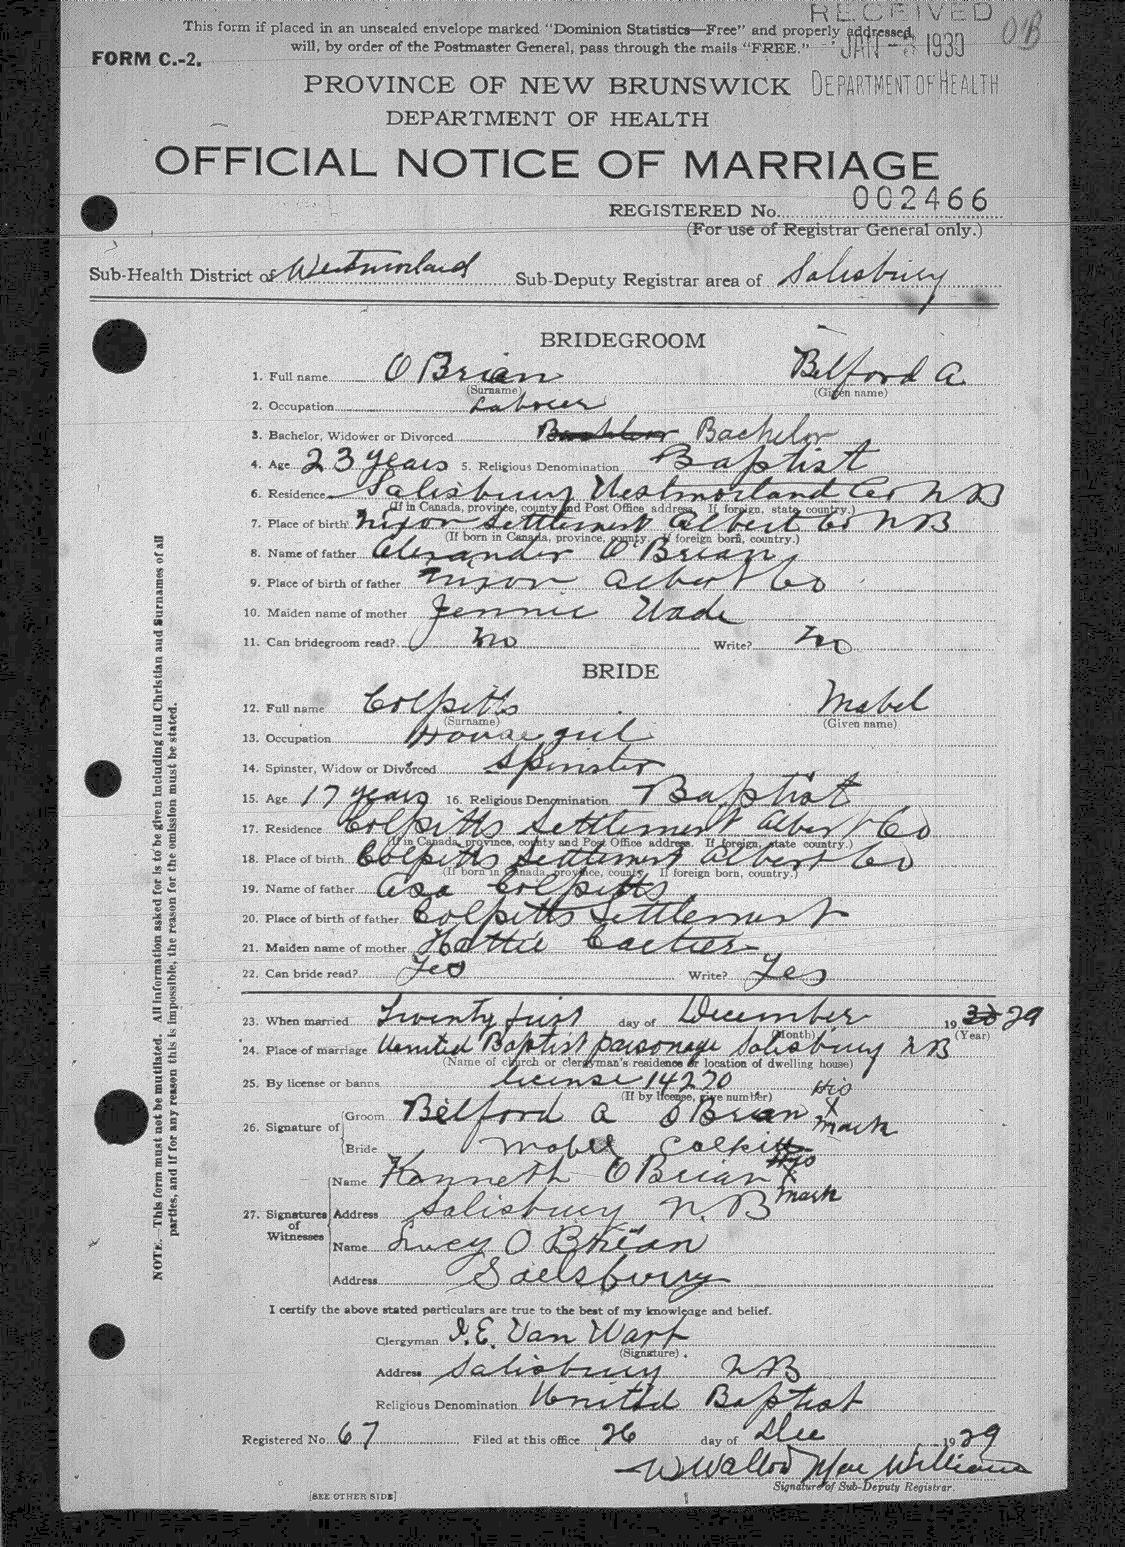 RECEIVED
This form if placed in an unsealed envelope marked "Dominion Statistics—Free" and properly addressed OB
will, by order of the Postmaster General, pass through the mails "FREE." JAN - 1930
FORM C.-2.
PROVINCE OF NEW BRUNSWICK DEPARTMENT OF HEALTH
DEPARTMENT OF HEALTH
OFFICIAL NOTICE OF MARRIAGE
REGISTERED No. 002466
(For use of Registrar General only.)
Sub-Health District of Westmorland Sub-Deputy Registrar area of Salisbury
BRIDEGROOM
1. Full name O Brian Belford A
(Surname) (Given name)
2. Occupation Labourer
3. Bachelor, Widower or Divorced Bachelor
4. Age 23 years 5. Religious Denomination Baptist
6. Residence Salisbury Westmorland Co N B
(If in Canada, province, county and Post Office address. If foreign, state, country.)
7. Place of birth Nixon Settlement Albert Co N B
(If born in Canada, province, county. If foreign born, country.)
8. Name of father Alexander O'Brian
9. Place of birth of father Nixon Albert Co
10. Maiden name of mother Jennie Wade
11. Can bridegroom read? no Write? no
BRIDE
12. Full name Colpitts Mabel
(Surname) (Given name)
13. Occupation House girl
14. Spinster, Widow or Divorced Spinster
15. Age 17 years 16. Religious Denomination Baptist
17. Residence Colpitts Settlement Albert Co
(If in Canada, province, county and Post Office address. If foreign, state country.)
18. Place of birth Colpitts Settlement Albert Co
(If born in Canada, province, county. If foreign born, country.)
19. Name of father Asa Colpitts
20. Place of birth of father Colpitts Settlement
21. Maiden name of mother Hattie
22. Can bride read? Yes Write? Yes
23. When married Twenty first day of December 19 30 29
(Month) (Year)
24. Place of marriage United Baptist parsonage Salisbury N B
(Name of church or clergyman's residence or location of dwelling house)
25. By license or banns license 14270
(If by license, give number)
26. Signature of
Groom Belford A O Brian his X mark
Bride Mabel Colpitts
27. Signatures of Witnesses
Name Kenneth O Brian his X mark
Address Salisbury N. B
Name Lucy O Brian
Address Salisbury
I certify the above stated particulars are true to the best of my knowledge and belief.
Clergyman I. E. Van Wart
(Signature).
Address Salisbury N B
Religious Denomination United Baptist
Registered No. 67 Filed at this office 26 day of Dec 1929
Signature of Sub-Deputy Registrar.
[SEE OTHER SIDE]
NOTE.—This form must not be mutilated. All information asked for is to be given including full Christian and Surnames of all
parties, and if for any reason this is impossible, the reason for the omission must be stated.